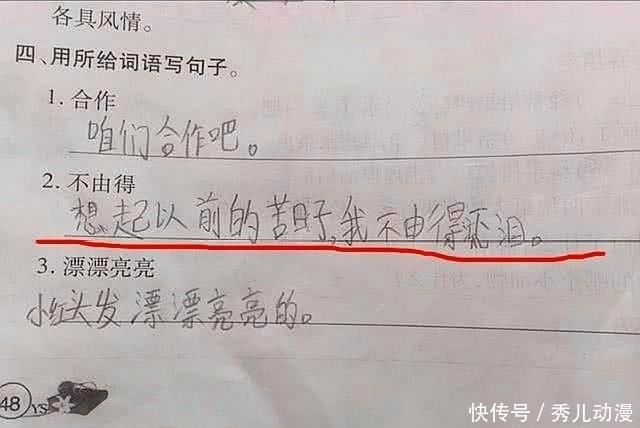 各具风情。
四、用所给词语写句子。
1. 合作
咱们合作吧。
2. 不由得
想起以前的苦日子,我不由得泪。
3. 漂漂亮亮
小红头发漂漂亮亮的。
48 YS
快传号／秀儿动漫